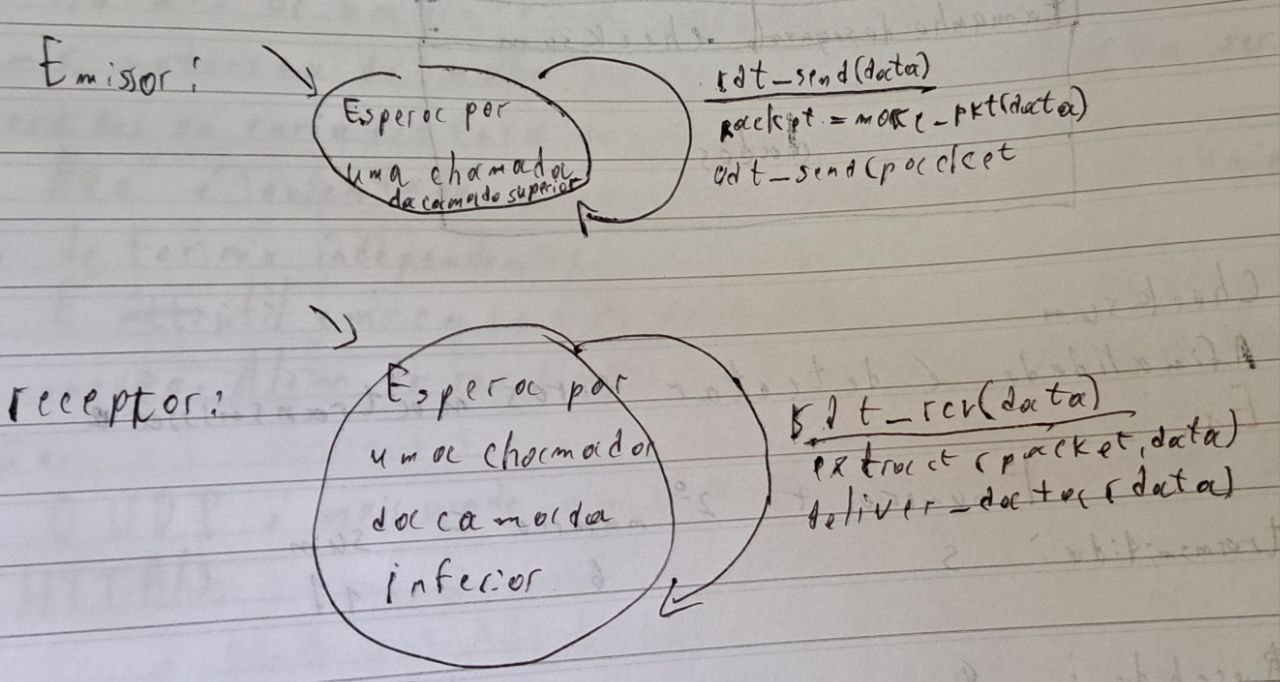 Emissor:
Esperar por
uma chamada
da camada superior
rdt_send(data)
packet = make_pkt(data)
udt_send(packet
receptor:
Esperar por
uma chamada
da camada
inferior
rdt_rcv(data)
extract (packet, data)
deliver_data (data)